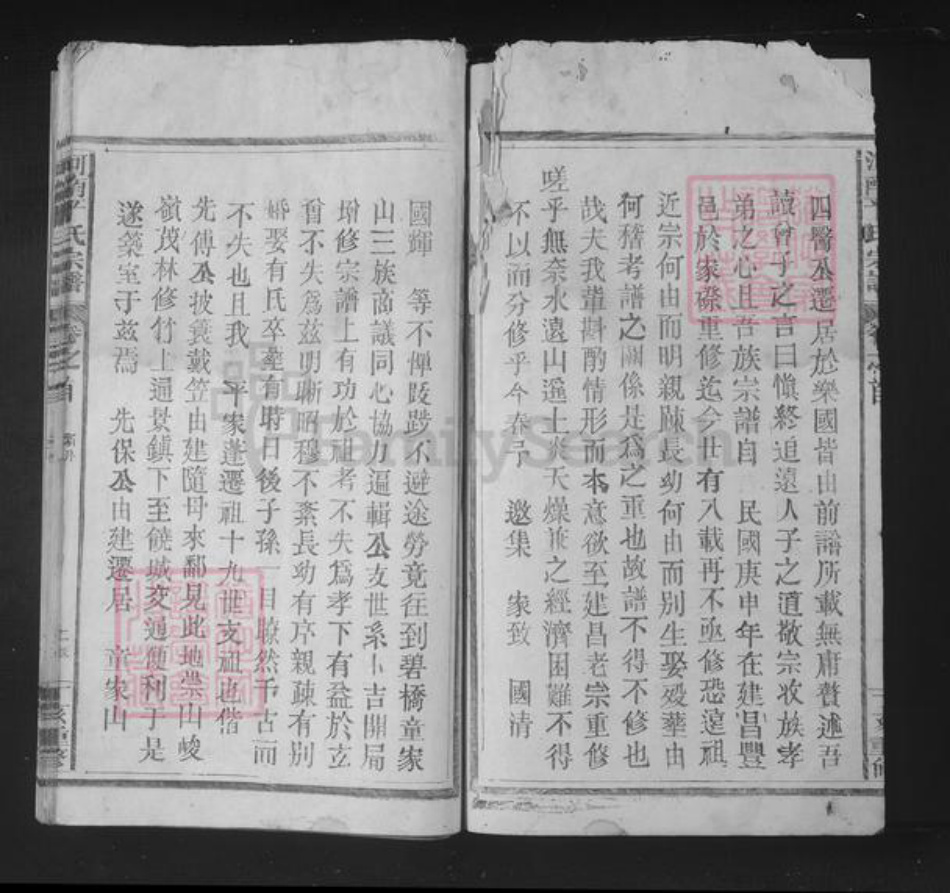 四醫公遷居於樂國皆由前譜所載無庸贅述吾
讀曾子之言曰愼終追遠人子之道敬宗收族孝
弟之心且吾族宗譜自　民國庚申年在建昌豐
邑於家磜重修迄今廿有八載再不亟修恐遠祖
近宗何由而明親疎長幼何由而别生娶殁葬由
何稽考譜之關係是爲之重也故譜不得不修也
哉夫我輩斟酌情形而本意欲至建昌老宗重修
嗟乎無奈水遠山遥土炎天燥兼之經濟困難不得
不以而分修乎今春予　邀集　家致　國清
國輝　等不憚跋踄不避途勞竟往到碧橋童家
山三族商議同心協力遍輯公支世系卜吉開局
增修宗譜上有功於祖考不失爲孝下有益於玄
曾不失爲兹明晰昭穆不紊長幼有序親疎有别
婚娶有氏卒葬有時日後子孫一目瞭然千古而
不失也且我　平家蓬遷祖十九世支祖也偕
先傅公披蓑戴笠由建隨母來鄱見此地崇山峻
嶺茂林修竹上通景鎮下至饒城交通便利于是
遂築室于兹焉　先保公由建遷居　童家山
河南平氏宗譜
FamilySearch